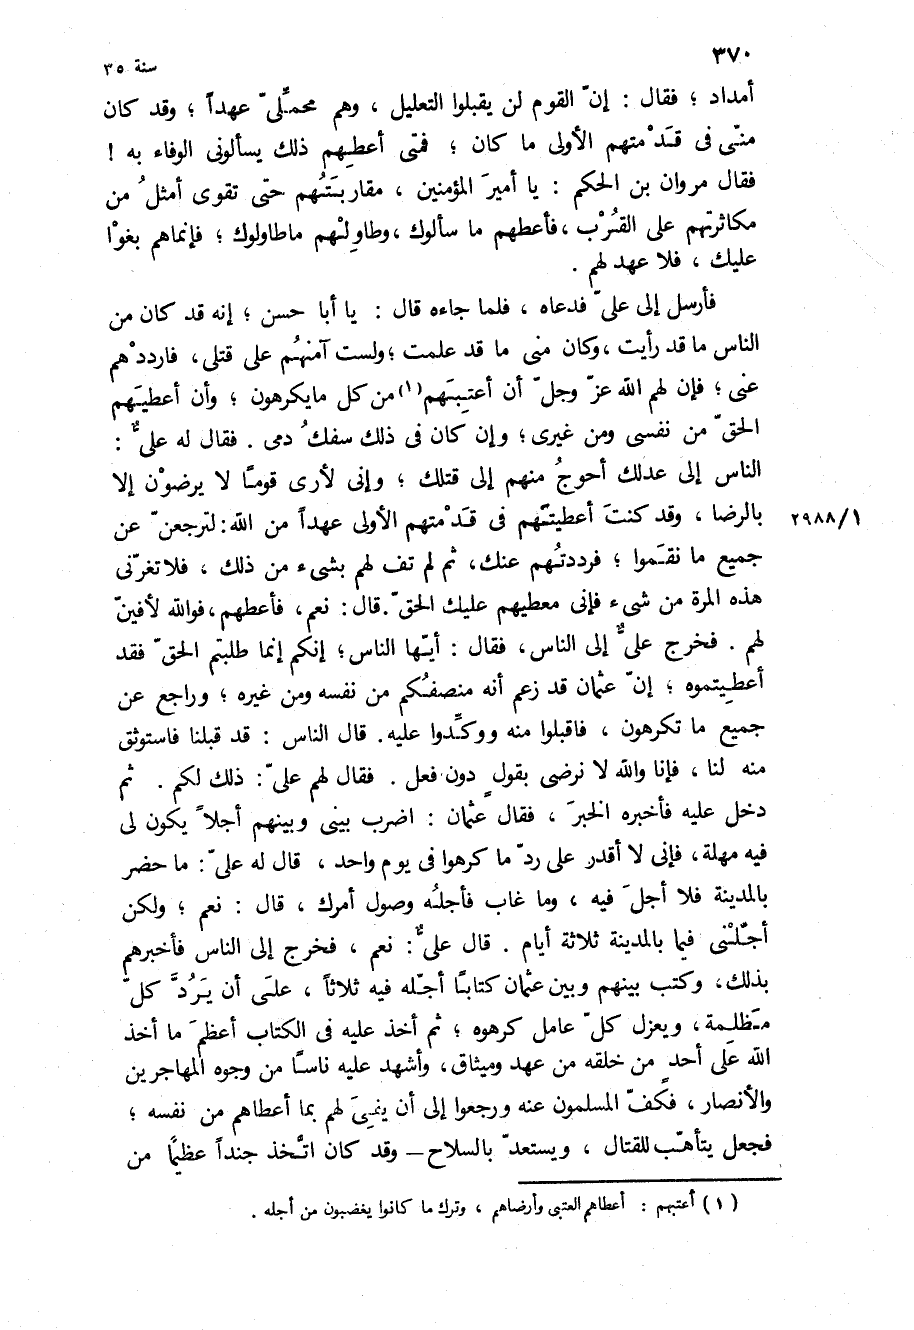 ٣٧٠
سنة ٣٥
أمداد ؛ فقال : إنّ القوم لن يقبلوا التعليل ، وهم محمِّلىّ عهداً ؛ وقد كان
منّى فى قَدْمتهم الأولى ما كان ؛ فمتى أعطِهم ذلك يسألونى الوفاء به !
فقال مروان بن الحكم : يا أميرَ المؤمنين ، مقاربَتُهم حتى تقوى أمثلُ من
مكاثرتهم على القُرْب ، فأعطهم ما سألوك ، وطاوِلْهم ماطاولوك ؛ فإنماهم بغوْا
عليك ، فلا عهد لهم .
فأرسل إلى علىّ فدعاه ، فلما جاءه قال : يا أبا حسن ؛ إنه قد كان من
الناس ما قد رأيت ، وكان منى ما قد علمت ؛ ولست آمنهُم على قتلى ، فارددْهم
عنى ؛ فإن لهم الله عزّ وجلّ أن أعتِبَهم (١) من كل مايكرهون ؛ وأن أعطيَهم
الحقّ من نفسى ومن غيرى ؛ وإن كان فى ذلك سفكُ دمى . فقال له علىٌّ :
الناس إلى عدلك أحوجُ منهم إلى قتلك ؛ وإنى لأرى قومًا لا يرضوْن إلا
بالرضا ، وقد كنتَ أعطيتَهم فى قَدْمتهم الأولى عهداً من الله : لترجعنّ عن
٢٩٨٨/١
جميع ما نقَموا ؛ فرددتُهم عنك ، ثم لم تف لهم بشىء من ذلك ، فلا تغرّنى
هذه المرة من شىء فإنى معطيهم عليك الحقّ . قال : نعم ، فأعطهم ، فوالله لأفينّ
لهم . فخرج علىٌّ إلى الناس ، فقال : أيّها الناس ؛ إنكم إنما طلبتم الحقّ فقد
أعطِيتموه ؛ إنّ عثمان قد زعم أنه منصفُكم من نفسه ومن غيره ؛ وراجع عن
جميع ما تكرهون ، فاقبلوا منه ووكِّدوا عليه . قال الناس : قد قبلنا فاستوثق
منه لنا ، فإنا والله لا نرضى بقولٍ دون فعل . فقال لهم علىّ : ذلك لكم . ثم
دخل عليه فأخبره الخبرَ ، فقال عثمان : اضرب بينى وبينهم أجلاً يكون لى
فيه مهلة ، فإنى لا أقدر على ردّ ما كرهوا فى يوم واحد ، قال له علىّ : ما حضر
بالمدينة فلا أجلَ فيه ، وما غاب فأجلُه وصول أمرك ، قال : نعم ؛ ولكن
أجّلنى فيما بالمدينة ثلاثة أيام . قال علىٌّ : نعم ، فخرج إلى الناس فأخبرهم
بذلك ، وكتب بينهم وبين عثمان كتابًا أجّله فيه ثلاثاً ، علَى أن يَرُدَّ كلّ
مَظلِمة ، ويعزل كلّ عامل كرهوه ؛ ثم أخذ عليه فى الكتاب أعظمَ ما أخذ
الله على أحدٍ من خلقه من عهد وميثاق ، وأشهد عليه ناسًا من وجوه المهاجرين
والأنصار ، فكَفّ المسلمون عنه ورجعوا إلى أن يفِىَ لهم بما أعطاهم من نفسه ؛
فجعل يتأهّب للقتال ، ويستعدّ بالسلاح – وقد كان اتَّخذ جنداً عظيمًا من
(١) أعتبهم : أعطاهم العتبى وأرضاهم ، وترك ما كانوا يغضبون من أجله .